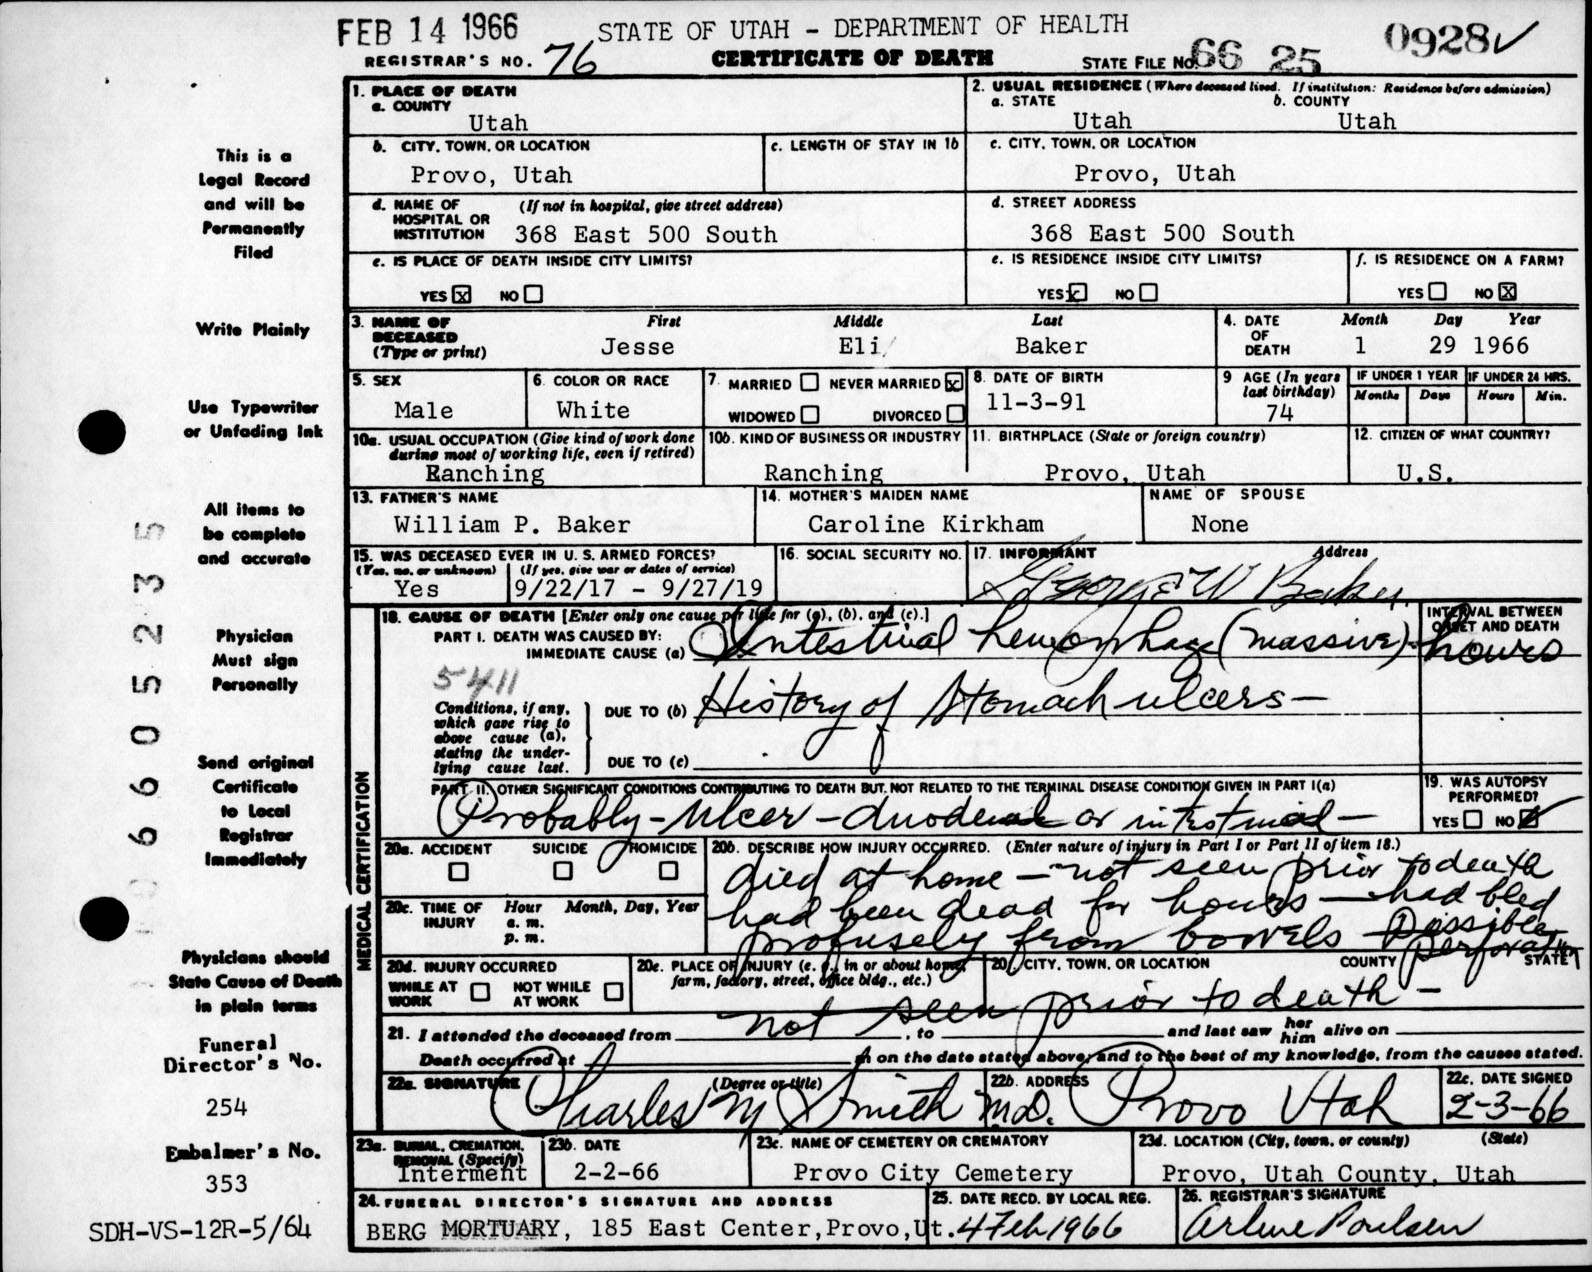 FEB 14 1966 STATE OF UTAH - DEPARTMENT OF HEALTH 0928✓
REGISTRAR'S NO. 76 CERTIFICATE OF DEATH STATE FILE No. 66 25
1. PLACE OF DEATH
a. COUNTY
Utah
2. USUAL RESIDENCE (Where deceased lived. If institution: Residence before admission)
a. STATE b. COUNTY
Utah Utah
b. CITY, TOWN, OR LOCATION
Provo, Utah
c. LENGTH OF STAY IN 1b
c. CITY, TOWN, OR LOCATION
Provo, Utah
d. NAME OF (If not in hospital, give street address)
HOSPITAL OR
INSTITUTION 368 East 500 South
d. STREET ADDRESS
368 East 500 South
e. IS PLACE OF DEATH INSIDE CITY LIMITS?
YES ☒ NO ☐
e. IS RESIDENCE INSIDE CITY LIMITS?
YES ☒ NO ☐
f. IS RESIDENCE ON A FARM?
YES ☐ NO ☒
3. NAME OF First Middle Last
DECEASED
(Type or print) Jesse Eli Baker
4. DATE Month Day Year
OF
DEATH 1 29 1966
5. SEX
Male
6. COLOR OR RACE
White
7. MARRIED ☐ NEVER MARRIED ☒
WIDOWED ☐ DIVORCED ☐
8. DATE OF BIRTH
11-3-91
9 AGE (In years
last birthday)
74
IF UNDER 1 YEAR IF UNDER 24 HRS.
Months Days Hours Min.
10a. USUAL OCCUPATION (Give kind of work done
during most of working life, even if retired)
Ranching
10b. KIND OF BUSINESS OR INDUSTRY
Ranching
11. BIRTHPLACE (State or foreign country)
Provo, Utah
12. CITIZEN OF WHAT COUNTRY?
U.S.
13. FATHER'S NAME
William P. Baker
14. MOTHER'S MAIDEN NAME
Caroline Kirkham
NAME OF SPOUSE
None
15. WAS DECEASED EVER IN U. S. ARMED FORCES?
(Yes, no, or unknown) (If yes, give war or dates of service)
Yes 9/22/17 - 9/27/19
16. SOCIAL SECURITY NO.
17. INFORMANT Address
George W Baker
MEDICAL CERTIFICATION
18. CAUSE OF DEATH [Enter only one cause per line for (a), (b), and (c).]
PART I. DEATH WAS CAUSED BY:
IMMEDIATE CAUSE (a) Intestinal hemorrhage (massive)
INTERVAL BETWEEN
ONSET AND DEATH
hours
5411
Conditions, if any,
which gave rise to
above cause (a),
stating the under-
lying cause last.
DUE TO (b) History of Stomach ulcers —
DUE TO (c)
PART II. OTHER SIGNIFICANT CONDITIONS CONTRIBUTING TO DEATH BUT NOT RELATED TO THE TERMINAL DISEASE CONDITION GIVEN IN PART I(a)
Probably - Ulcer - duodenal or
19. WAS AUTOPSY
PERFORMED?
YES ☐ NO ☑
20a. ACCIDENT SUICIDE HOMICIDE
☐ ☐ ☐
20b. DESCRIBE HOW INJURY OCCURRED. (Enter nature of injury in Part I or Part II of item 18.)
died at home — not seen prior to death
had been dead for hours — had bled
profusely from bowels Possible
perforation
20c. TIME OF Hour Month, Day, Year
INJURY a. m.
p. m.
20d. INJURY OCCURRED
WHILE AT ☐ NOT WHILE ☐
WORK AT WORK
20e. PLACE OF INJURY (e. g., in or about home,
farm, factory, street, office bldg., etc.)
20f. CITY, TOWN, OR LOCATION COUNTY STATE
not seen prior to death —
21. I attended the deceased from , to and last saw her him alive on
Death occurred at m on the date stated above; and to the best of my knowledge, from the causes stated.
22a. SIGNATURE (Degree or title)
Charles M Smith M.D.
22b. ADDRESS
Provo Utah
22c. DATE SIGNED
2-3-66
23a. BURIAL, CREMATION,
REMOVAL (Specify)
Interment
23b. DATE
2-2-66
23c. NAME OF CEMETERY OR CREMATORY
Provo City Cemetery
23d. LOCATION (City, town, or county) (State)
Provo, Utah County, Utah
24. FUNERAL DIRECTOR'S SIGNATURE AND ADDRESS
BERG MORTUARY, 185 East Center, Provo, Ut.
25. DATE RECD. BY LOCAL REG.
4 Feb 1966
26. REGISTRAR'S SIGNATURE
Arlene Poulsen
This is a
Legal Record
and will be
Permanently
Filed
Write Plainly
Use Typewriter
or Unfading Ink
All items to
be complete
and accurate
Physician
Must sign
Personally
Send original
Certificate
to Local
Registrar
Immediately
Physicians should
State Cause of Death
in plain terms
Funeral
Director's No.
254
Embalmer's No.
353
SDH-VS-12R-5/64
6605235